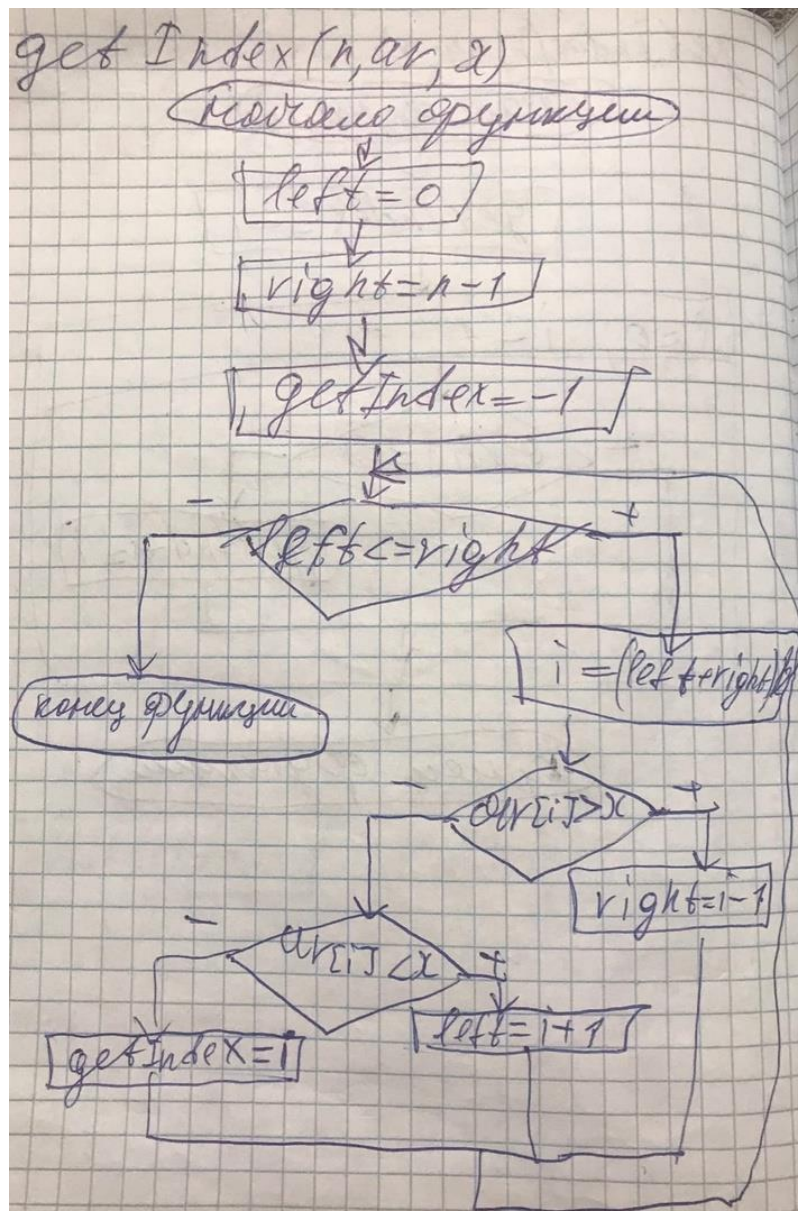 getIndex(n,ar,x)
начало функции
left=0
right=n-1
getIndex=-1
- left<=right +
i=(left+right)
конец функции
- ar[i]>x +
right=i-1
- ar[i]<x +
left=i+1
getIndex=i